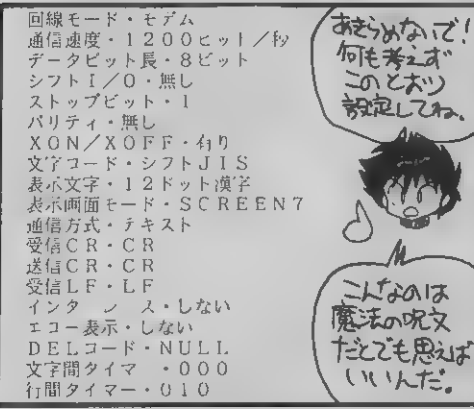 回線モード・モデム
通信速度・1200ヒット/秒
データビット長・8ビット
シフトI/O・無し
ストップビット・1
パリティ・無し
XON/XOFF・有り
文字コード・シフトJIS
表示文字・12ドット漢字
表示画面モード・SCREEN7
通信方式・テキスト
受信CR・CR
送信CR・CR
受信LF・LF
インタ レース・しない
エコー表示・しない
DELコード・NULL
文字間タイマ ・000
行間タイマー・010
あきらめないで!
何も考えず
このとおり
設定してね。
こんなのは
魔法の呪文
だとでも思えば
いいんだ。